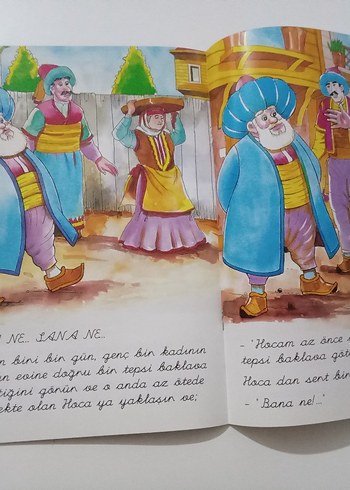 NE.. SANA NE..
biri bir gün, genç bir kadının
evine doğru bir tepsi baklava
görür ve o anda az ötede
olan Hoca ya yaklaşır ve;
- "Hocam az önce
tepsi baklava
Hoca dan sert bir
- "Bana ne!..."